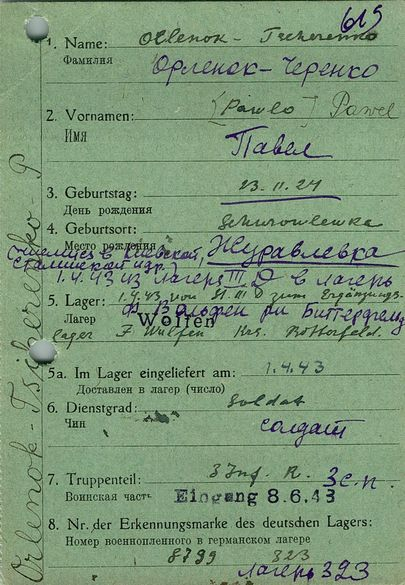 615
1. Name: Orlenok - Tscherenko
Фамилия Орленок-Черенко
2. Vornamen: (Pawlo) Pawel
Имя Павел
3. Geburtstag: 23.11.24
День рождения
4. Geburtsort:
Место рождения Журавлевка
в Киевской,
Сталинской
1.4.43 из лагеря III D в лагерь
5. Lager: 1.4.43 von St. III D zum Ergänzungs-
Лагер Wolfen
Вольфен Биттерфельд
lager F. Wolfen Krs. Bitterfeld.
5a. Im Lager eingeliefert am: 1.4.43
Доставлен в лагер (число)
6. Dienstgrad: Soldat
Чин солдат
7. Truppenteil: 3 Inf. R. 3 с.п.
Воинская часть Eingang 8.6.43
8. Nr. der Erkennungsmarke des deutschen Lagers:
Номер военнопленного в германском лагере
8799 323
лагерь 323
Orlenok-Tscherenko-P